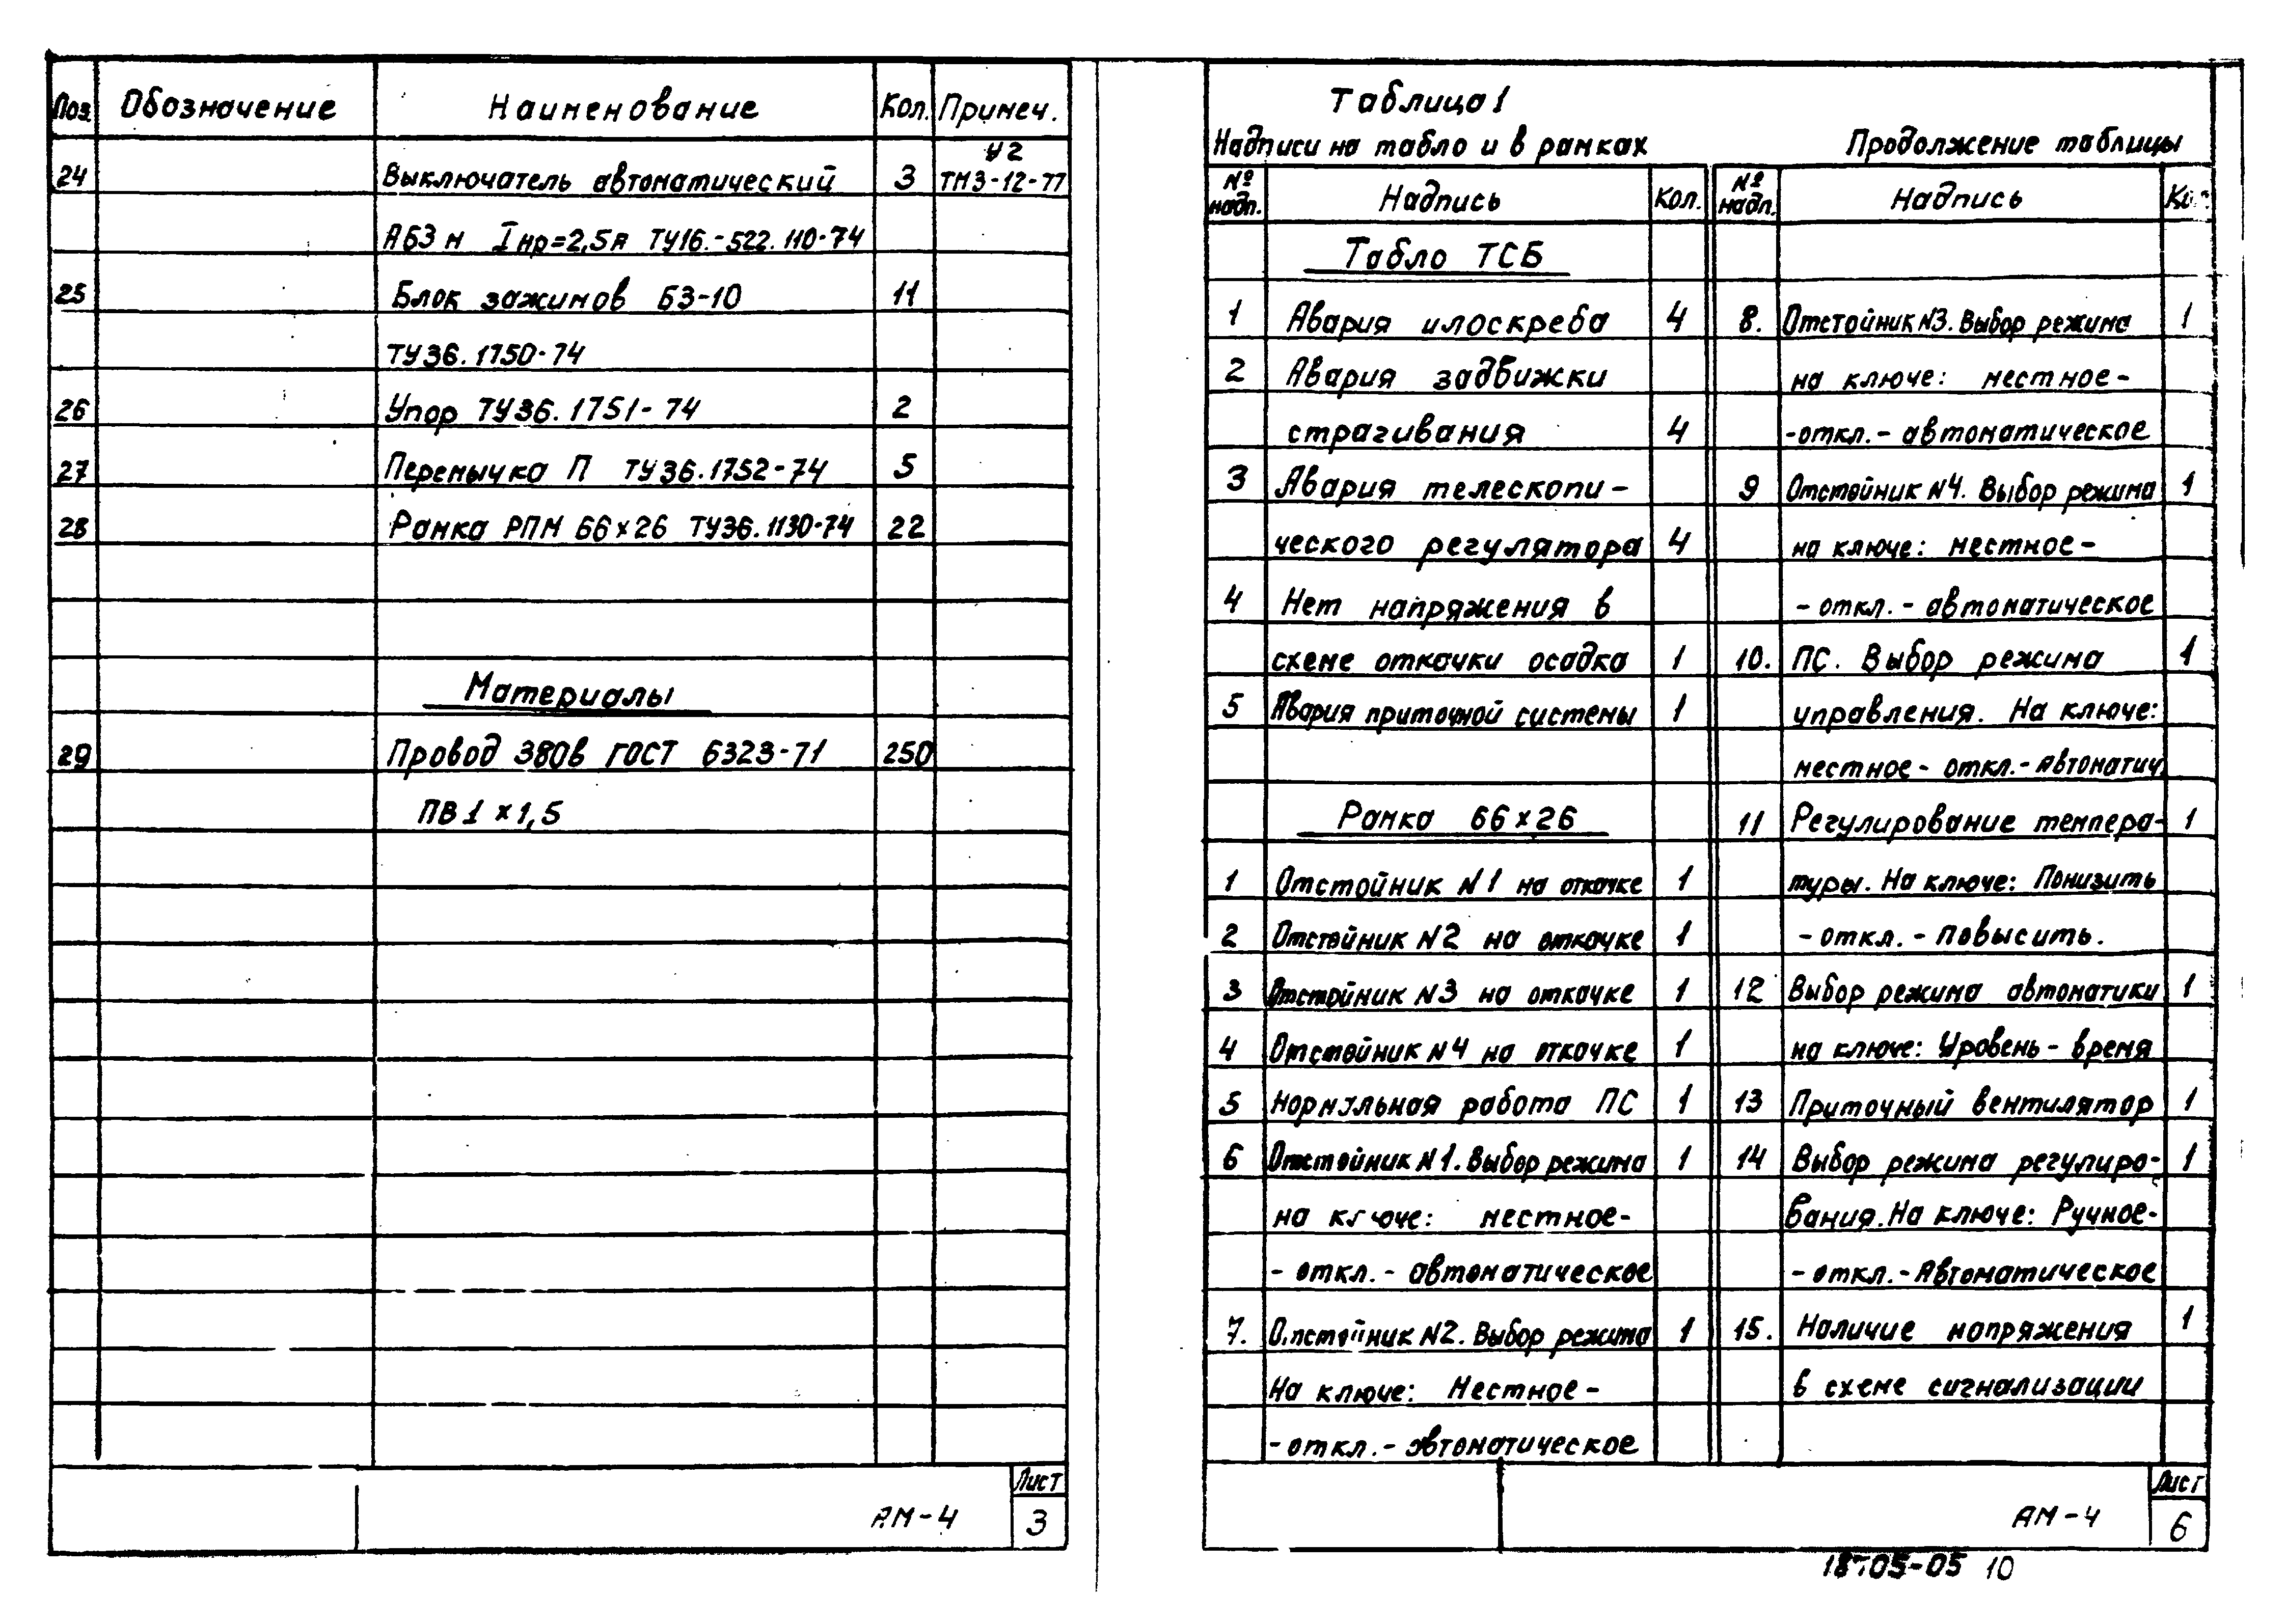 Поз. Обозначение Наименование Кол. Примеч.
24 Выключатель автоматический 3 У2 ТМ3-12-77
А63м Iнр=2,5А ТУ16.-522.110-74
25 Блок зажимов БЗ-10 11
ТУ36.1750-74
26 Упор ТУ36.1751-74 2
27 Перемычка П ТУ36.1752-74 5
28 Рамка РПМ 66х26 ТУ36.1130-74 22
Материалы
29 Провод 380в ГОСТ 6323-71 250
ПВ 1 х 1,5
АМ-4 Лист 3
Таблица 1
Надписи на табло и в рамках
№ надп. Надпись Кол.
Табло ТСБ
1 Авария илоскреба 4
2 Авария задвижки
страгивания 4
3 Авария телескопи-
ческого регулятора 4
4 Нет напряжения в
схеме откачки осадка 1
5 Авария приточной системы 1
Рамка 66х26
1 Отстойник N1 на откачке 1
2 Отстойник N2 на откачке 1
3 Отстойник N3 на откачке 1
4 Отстойник N4 на откачке 1
5 Нормальная работа ПС 1
6 Отстойник N1. Выбор режима 1
на ключе: местное-
- откл.- автоматическое
7. Отстойник N2. Выбор режима 1
На ключе: Местное-
- откл.- автоматическое
Продолжение таблицы
№ надп. Надпись
8. Отстойник N3. Выбор режима 1
на ключе: местное-
-откл.- автоматическое
9 Отстойник N4. Выбор режима 1
на ключе: местное-
- откл.- автоматическое
10. ПС. Выбор режима 1
управления. На ключе:
местное- откл.- Автоматич
11 Регулирование темпера- 1
туры. На ключе: Понизить
- откл.- повысить.
12 Выбор режима автоматики 1
на ключе: Уровень- время
13 Приточный вентилятор 1
14 Выбор режима регулиро- 1
вания. На ключе: Ручное-
- откл.- Автоматическое
15. Наличие напряжения 1
в схеме сигнализации
АМ-4 Лист 6
18705-05 10